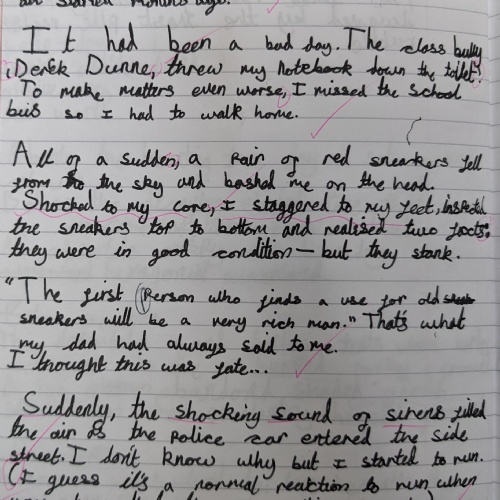 all started months ago.
It had been a bad day. The class bully
, Derek Dunne, threw my notebook down the toilet.
To make matters even worse, I missed the school
bus so I had to walk home.
All of a sudden, a pair of red sneakers fell
from the sky and bashed me on the head.
Shocked to my core, I staggered to my feet, inspected
the sneakers top to bottom and realised two facts;
they were in good condition — but they stank.
"The first person who finds a use for old
sneakers will be a very rich man." That's what
my dad had always said to me.
I thought this was fate...
Suddenly, the shocking sound of sirens filled
the air as the police car entered the side
street. I don't know why but I started to run.
(I guess it's a normal reaction to run when